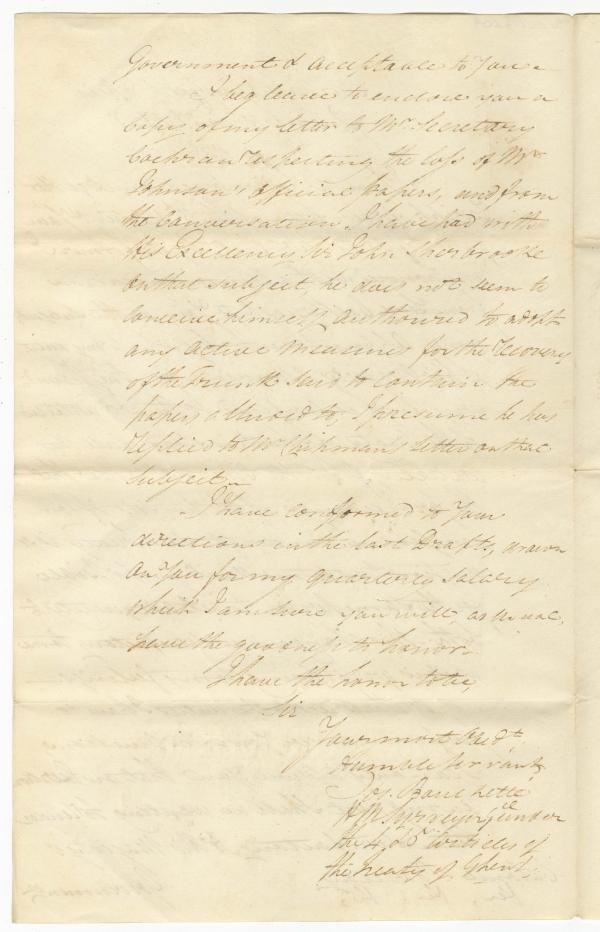 Government & acceptable to You –
I beg leave to enclose you a
Copy of my letter to Mr. Secretary
Cochran respecting the loss of Mr
Johnson's official papers, and from
the Conversation I have had with
His Excellency Sir John Sherbrooke
on that subject, he does not seem to
conceive himself authorized to adopt
any active measures for the recovery
of the Trunk said to contain the
papers alluded to, I presume he has
replied to Mr Chipman's letter on that
subject –
I have conformed to Your
directions in the last Drafts, drawn
on You for my quarterly Salary
which I am sure you will, as usual,
have the goodness to honor –
I have the honor to be,
Sir
Your most Obedt
Humble Servant
Jos. Bouchette
HM Surveyor Genl under
the 4 & 5 Articles of
the treaty of Ghent